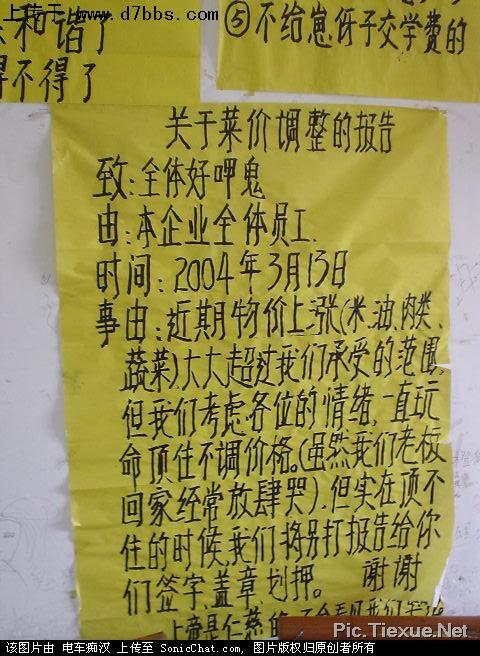 上传于 www.d7bbs.com
和谐了
得不得了
⑤不给崽伢子交学费的
关于菜价调整的报告
致:全体好呷鬼
由:本企业全体员工.
时间:2004年3月13日
事由:近期物价上涨(米、油、肉类、
蔬菜)大大超过我们承受的范围,
但我们考虑各位的情绪,一直玩
命顶住不调价格。(虽然我们老板
回家经常放肆哭).但实在顶不
住的时候,我们将另打报告给你
们签字、盖章、划押。 谢谢
上帝是仁慈的
Pic.Tiexue.Net
该图片由 电车痴汉 上传至 SonicChat.com , 图片版权归原创者所有